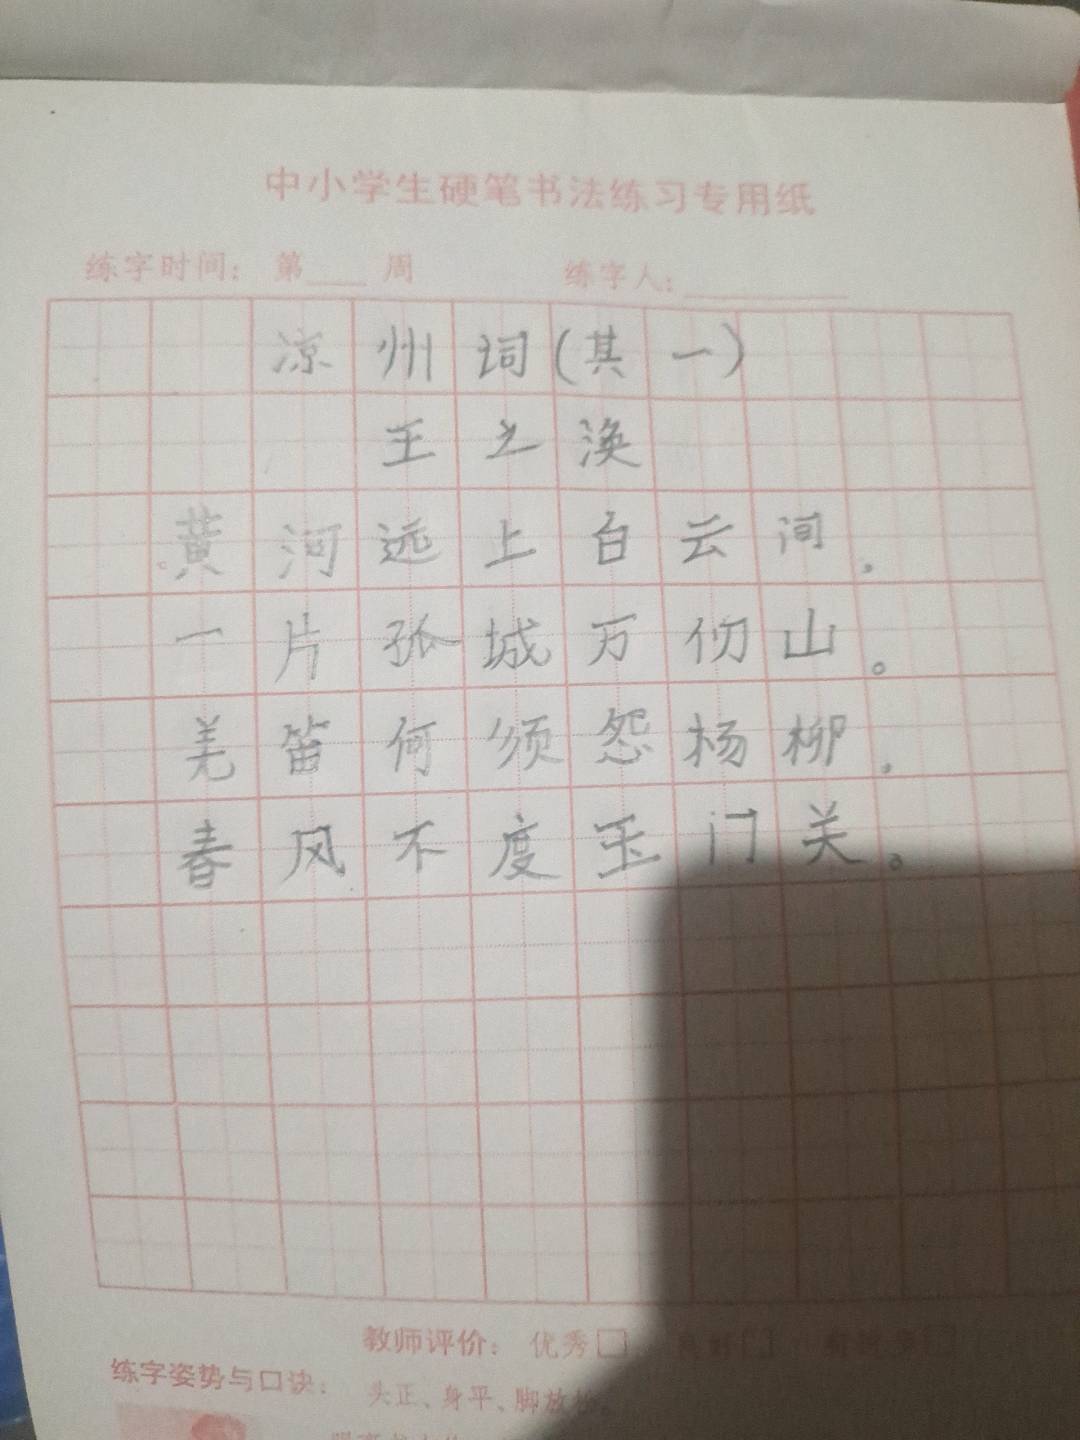 中小学生硬笔书法练习专用纸
练字时间：第___周 练字人：________
凉州词(其一)
王之涣
黄河远上白云间，
一片孤城万仞山。
羌笛何须怨杨柳，
春风不度玉门关。
教师评价：优秀□ 良好□
练字姿势与口诀：头正、身平、脚放松。